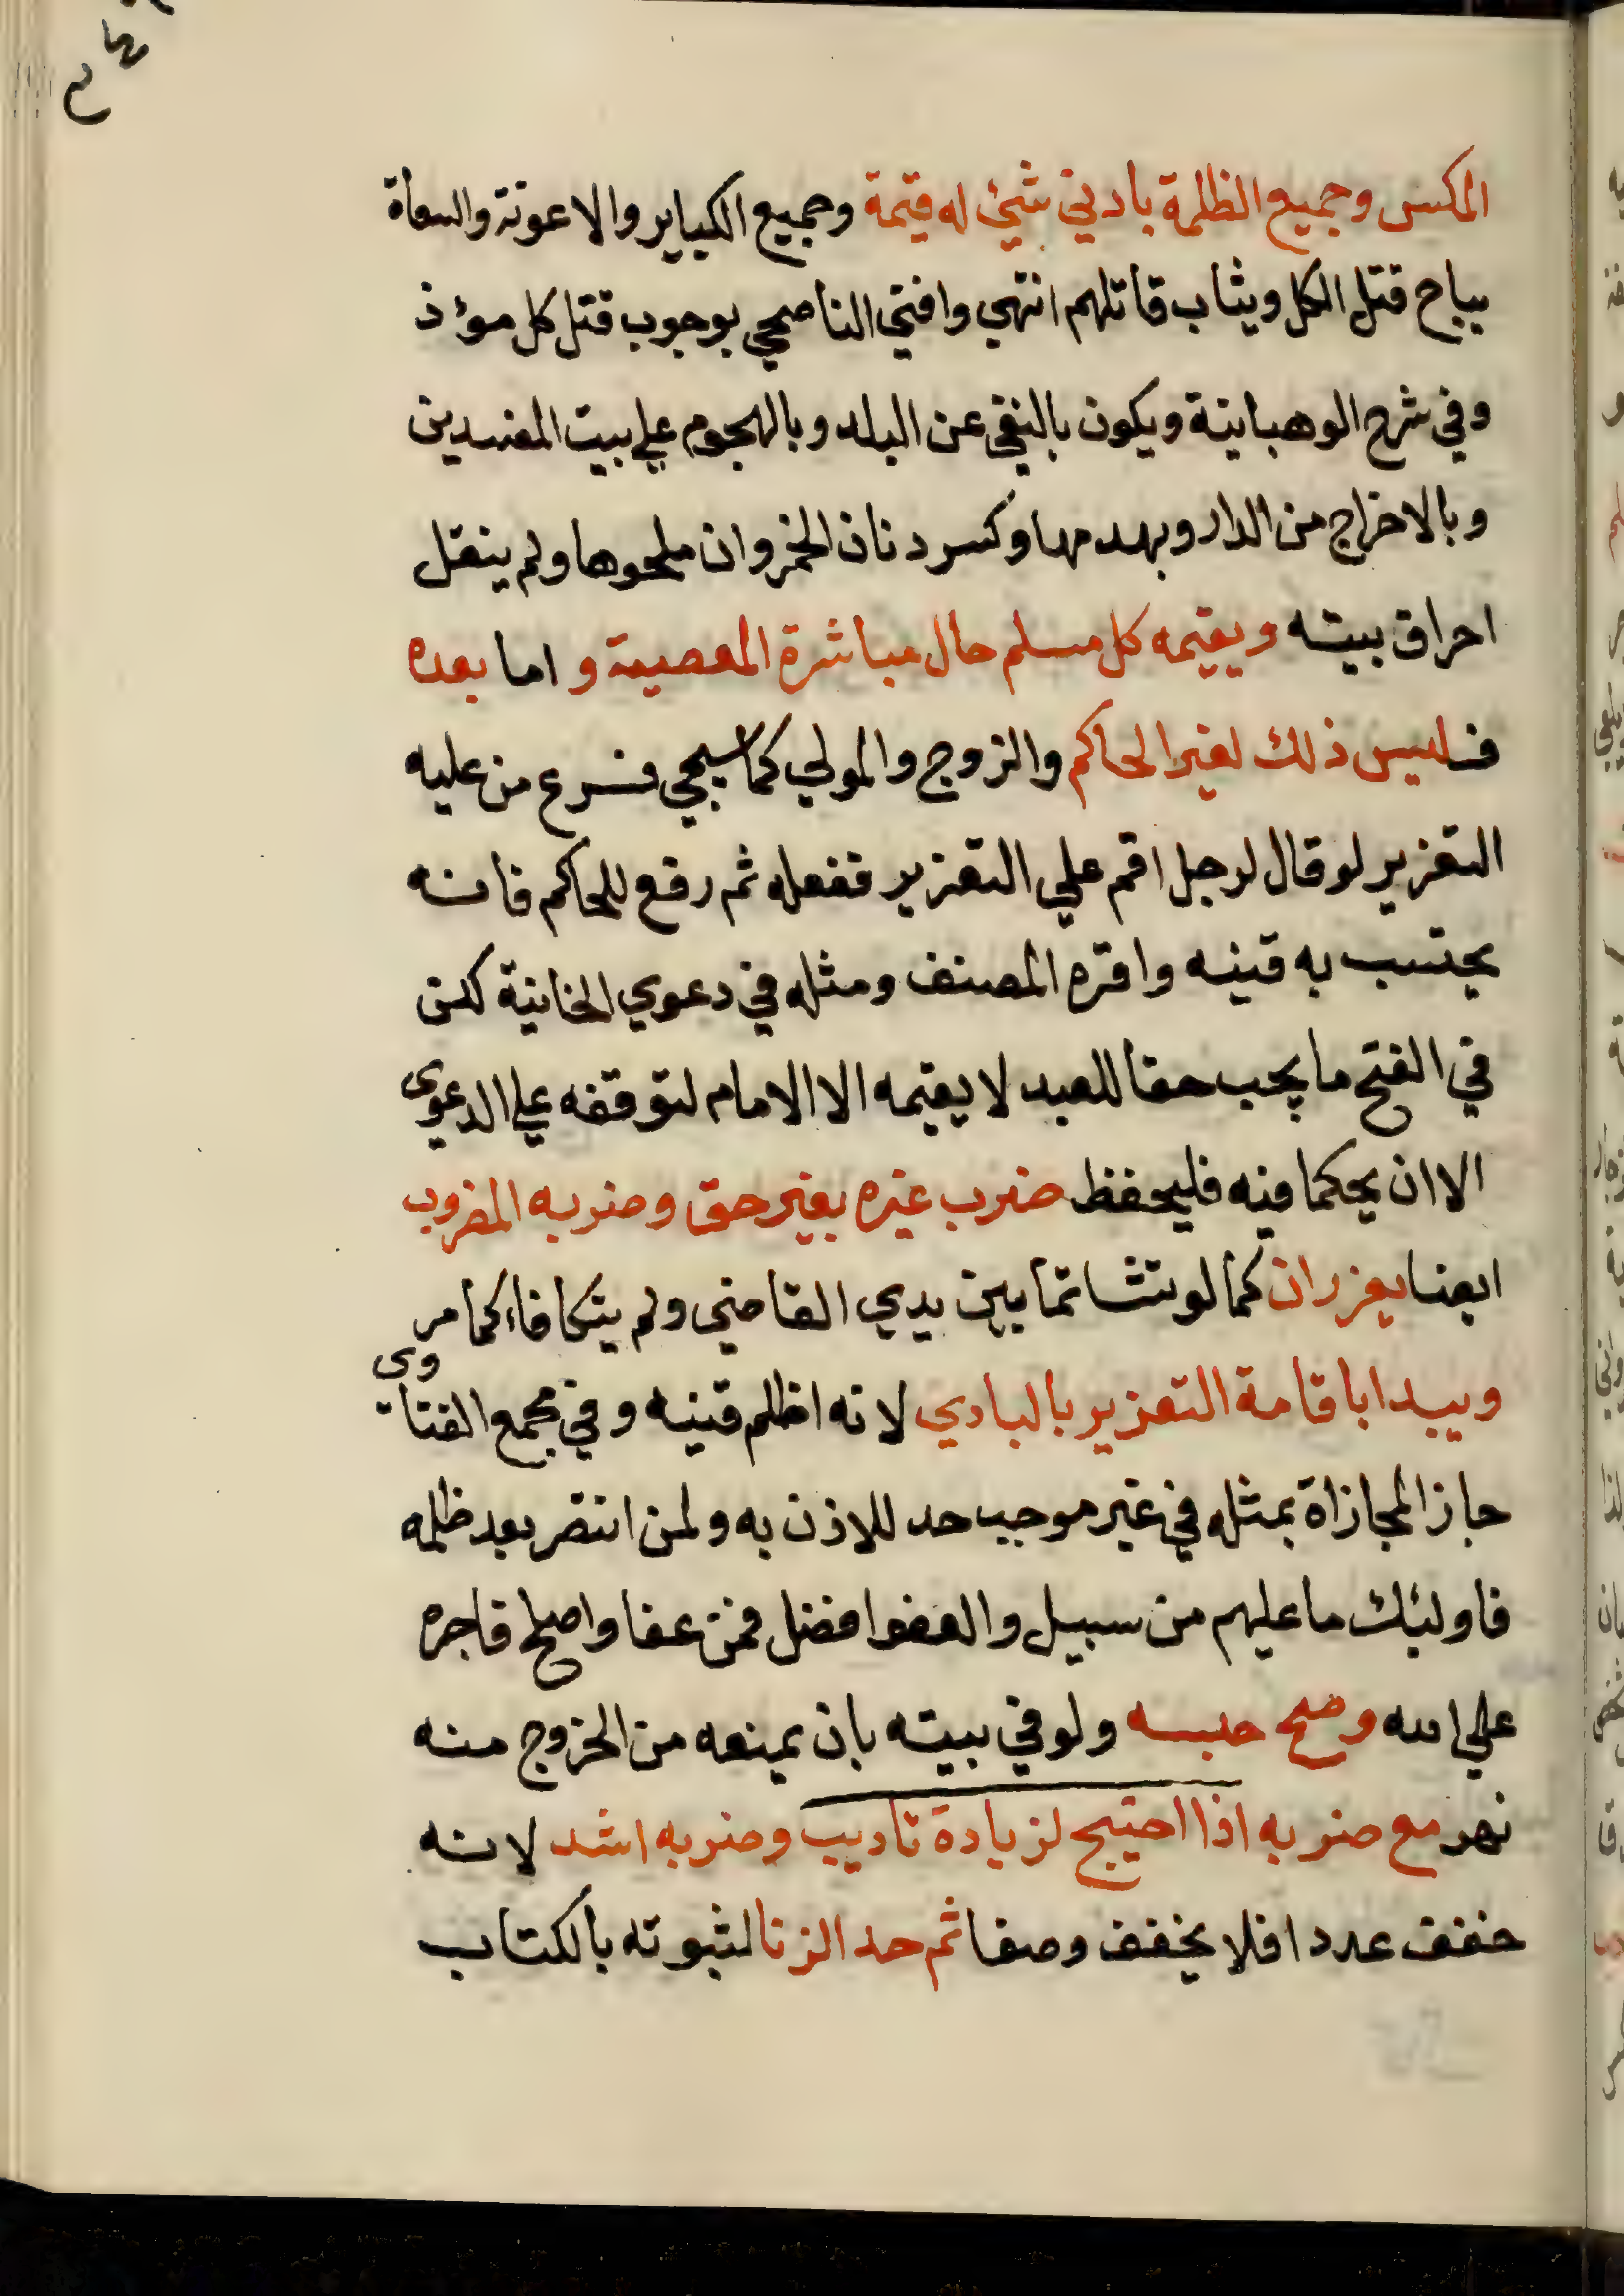 المكس وجميع الظلمة بادني شئ له قيمة وجميع الكباير والاعونة والسعاة
يباح قتل الكل ويثاب قاتلهم انتهي وافتي الناصحي بوجوب قتل كل موذ
وفي شرح الوهبانية ويكون بالنفي عن البلد وبالهجوم علي بيت المفسدين
وبالاخراج من الدار وبهدمها وكسر دنان الخمر وان ملحوها ولم ينقل
احراق بيته ويقيمه كل مسلم حال مباشرة المعصية و اما بعده
فليس ذلك لغير الحاكم والزوج والمولي كما سيجي فرع من عليه
التعزير لو قال لرجل اقم علي التعزير ففعله ثم رفع للحاكم فانه
يحتسب به قنيه واقره المصنف ومثله في دعوي الخانية لكن
في الفتح ما يجب حقا للعبد لا يقيمه الا الامام لتوقفه علي الدعوى
الا ان يحكما فيه فليحفظ ضرب غيره بغير حق وضربه المضروب
ايضا يعزران كما لو تشاتما بين يدي القاضي ولم يتكافاء كما مر
ويبدا باقامة التعزير بالبادي لانه اظلم قنيه وفي مجمع الفتاوى
جاز المجازاة بمثله في غير موجب حد للاذن به ولمن انتصر بعد ظلمه
فاولئك ما عليهم من سبيل والعفو افضل فمن عفا واصلح فاجره
علي الله وصح حبسه ولو في بيته بان يمنعه من الخروج منه
نهر مع ضربه اذا احتيج لزيادة تاديب وضربه اشد لانه
خفف عددا فلا يخفف وصفا ثم حد الزنا لثبوته بالكتاب